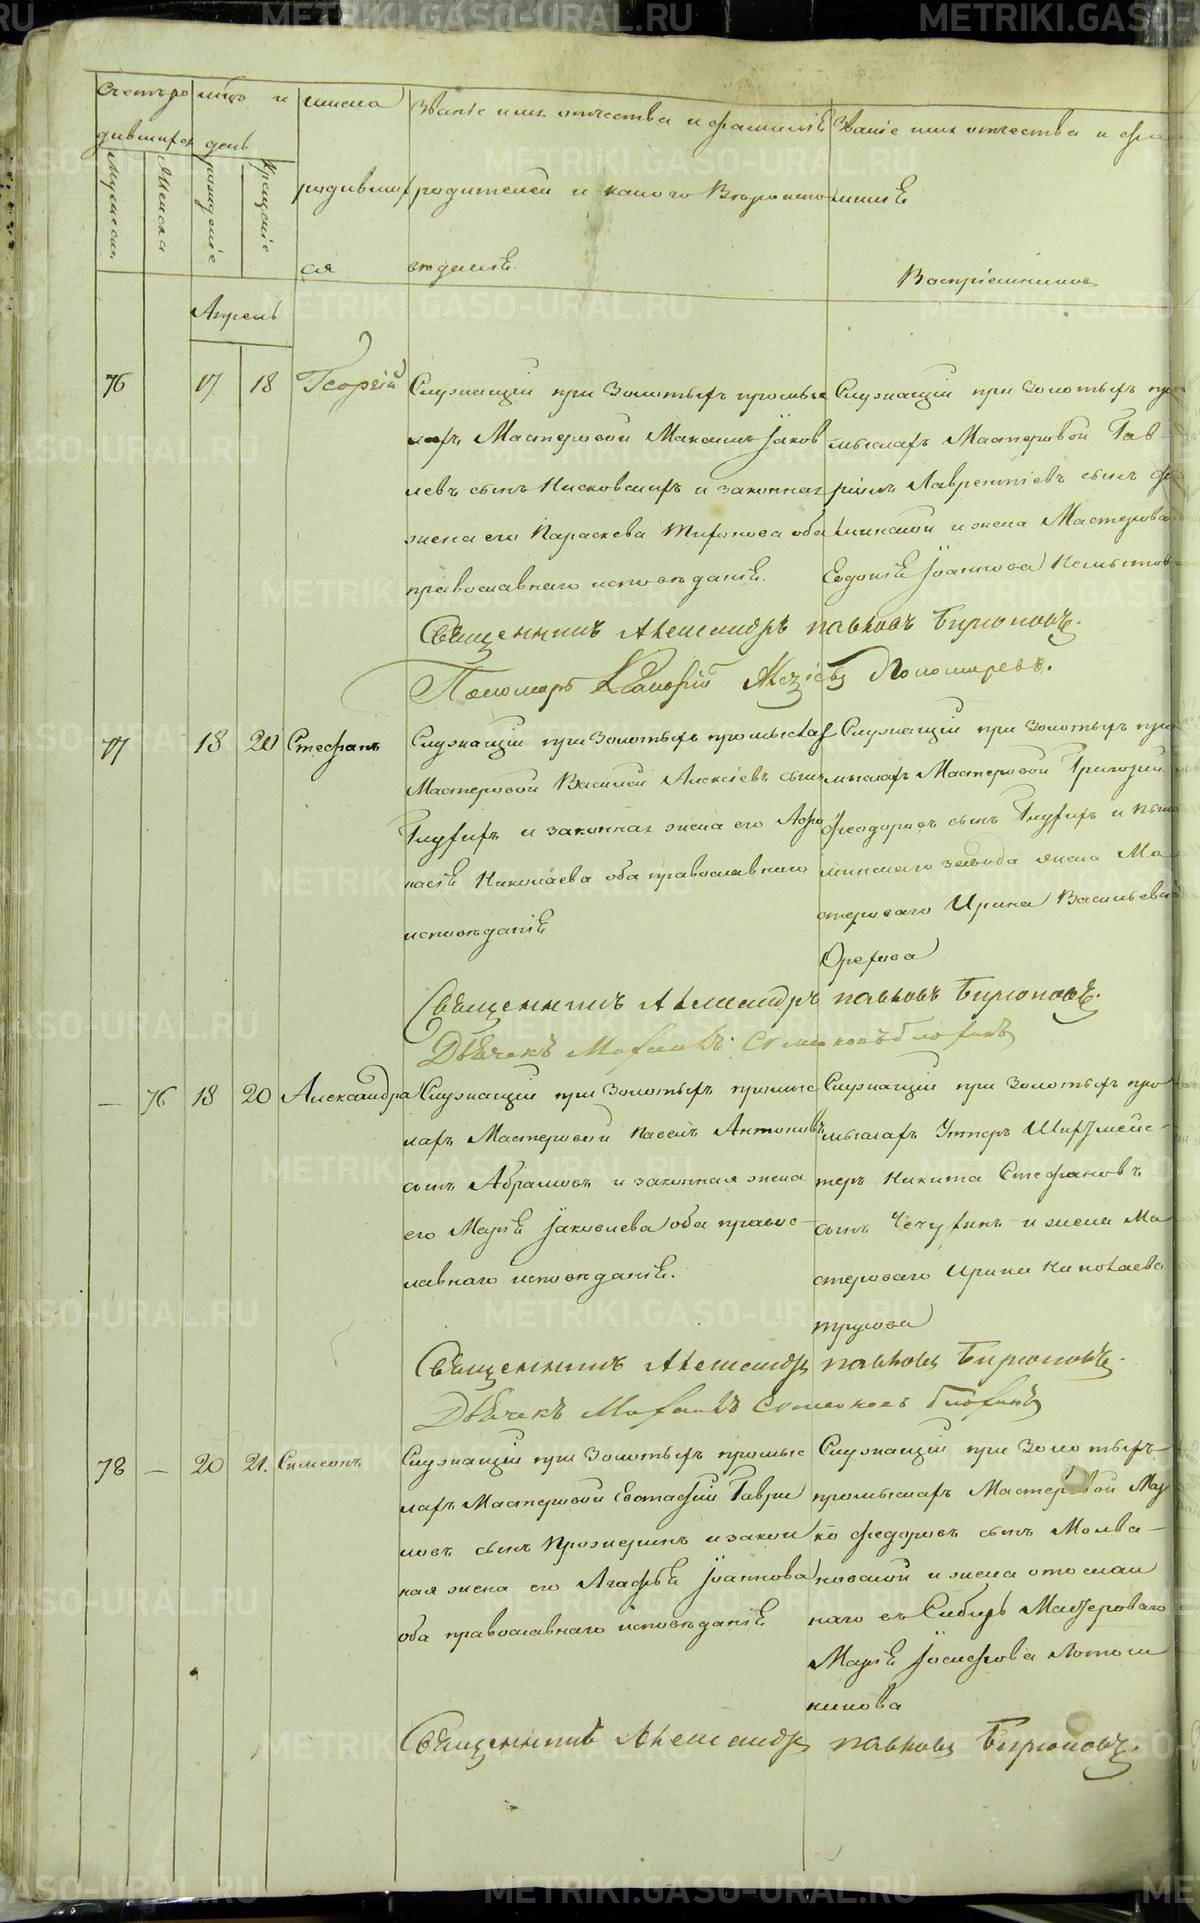 METRIKI.GASO-URAL.RU
Счетъ ро
дившихся
мѣсяцъ и
день
имена
родивших
ся
Званіе имя отчества и фамилія
родителей и какого Вѣроиспо
вѣданія.
Званіе имя отчества и фа
милія
Воспріемниковъ
Мужеска
Женска
рожденіе
крещеніе
Апрель
76 17 18 Георгій
Служащій при Золотыхъ промыс
лахъ Мастеровой Максимъ Іаков
левъ сынъ и законная
жена его Параскева оба
православнаго исповѣданія.
Служащій при Золотыхъ про
мыслахъ Мастеровой Гав-
ріилъ Лаврентіевъ сынъ
и жена Мастероваго
Евдокія Іоаннова
Священникъ Александръ павловъ Бирюковъ.
Пономарь Пономаревъ.
77 18 20 Стефанъ
Служащій при Золотыхъ промыслах
Мастеровой Василій Алексіевъ сынъ
Глухихъ и законная жена его Афа
насія Николаева оба православнаго
исповѣданія
Служащій при Золотыхъ про
мыслахъ Мастеровой Григорій
Феодоровъ сынъ Глухихъ и
минскаго завода жена Ма
стероваго Ирина Васильева
Орехова
Священникъ Александръ павловъ Бирюковъ.
Дьячекъ Михаилъ
— 76 18 20 Александра
Служащій при Золотыхъ промыс
лахъ Мастеровой Павелъ Антоновъ
сынъ Абрамовъ и законная жена
его Марія Іаковлева оба правос-
лавнаго исповѣданія.
Служащій при Золотыхъ про
мыслахъ Унтеръ Шихтмейс-
теръ Никита Стефановъ
сынъ Чечулинъ и жена Ма
стероваго Ирина Николаева
трусова
Священникъ Александръ павловъ Бирюковъ.
Дьячекъ Михаилъ
78 — 20 21. Симеонъ
Служащій при Золотыхъ промыс
лахъ Мастеровой Евстафій Гаври
ловъ сынъ Прожеринъ и закон
ная жена его Агафія Іоаннова
оба православнаго исповѣданія
Служащій при Золотыхъ
промыслахъ Мастеровой Мар
ко Федоровъ сынъ Молва-
новской и жена отослан
наго въ Сибирь Мастероваго
Марія Іосифова
никова
Священникъ Александръ павловъ Бирюковъ.